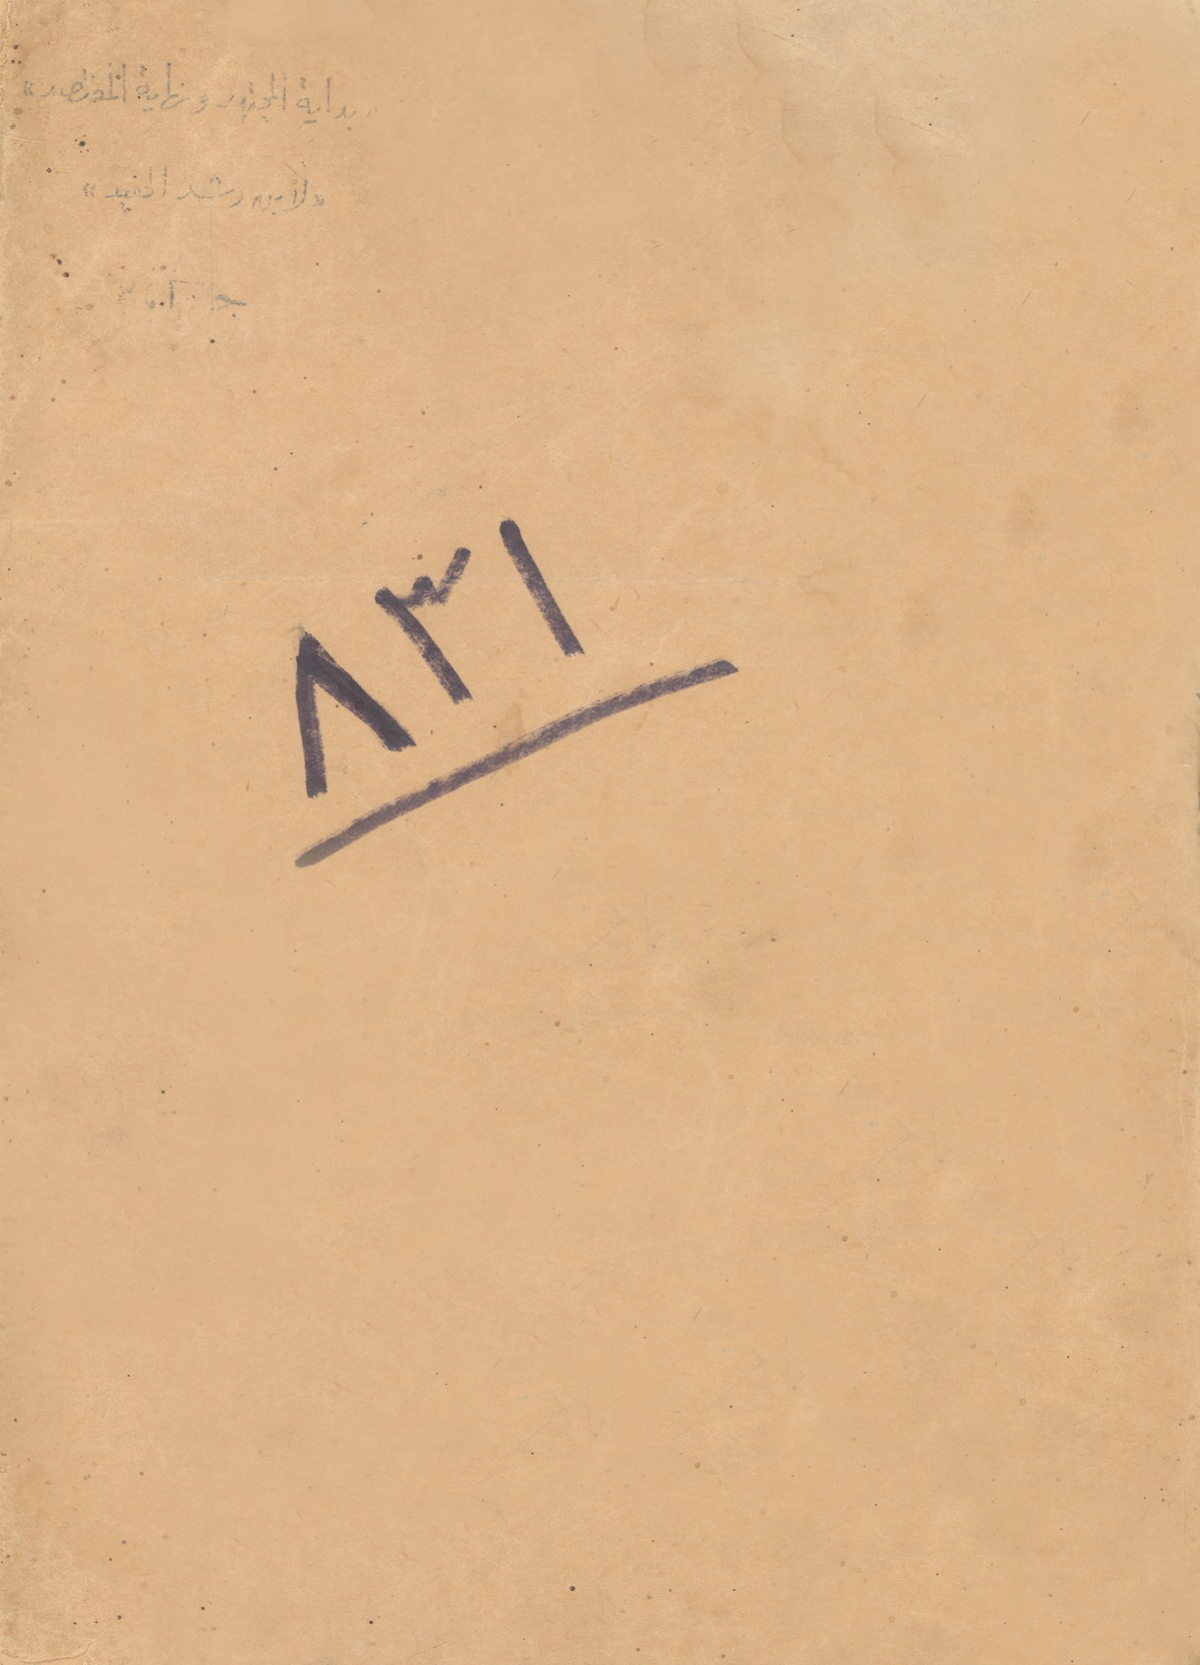 «بداية المجتهد ونهاية المقتصد»
«لابن رشد الحفيد»
٨٣١